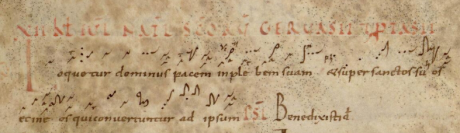 NAT SCORUM GERVASII
Loquetur dominus pacem in plebem suam & super sanctos suos
et in eos qui convertuntur ad ipsum PS Benedixisti d